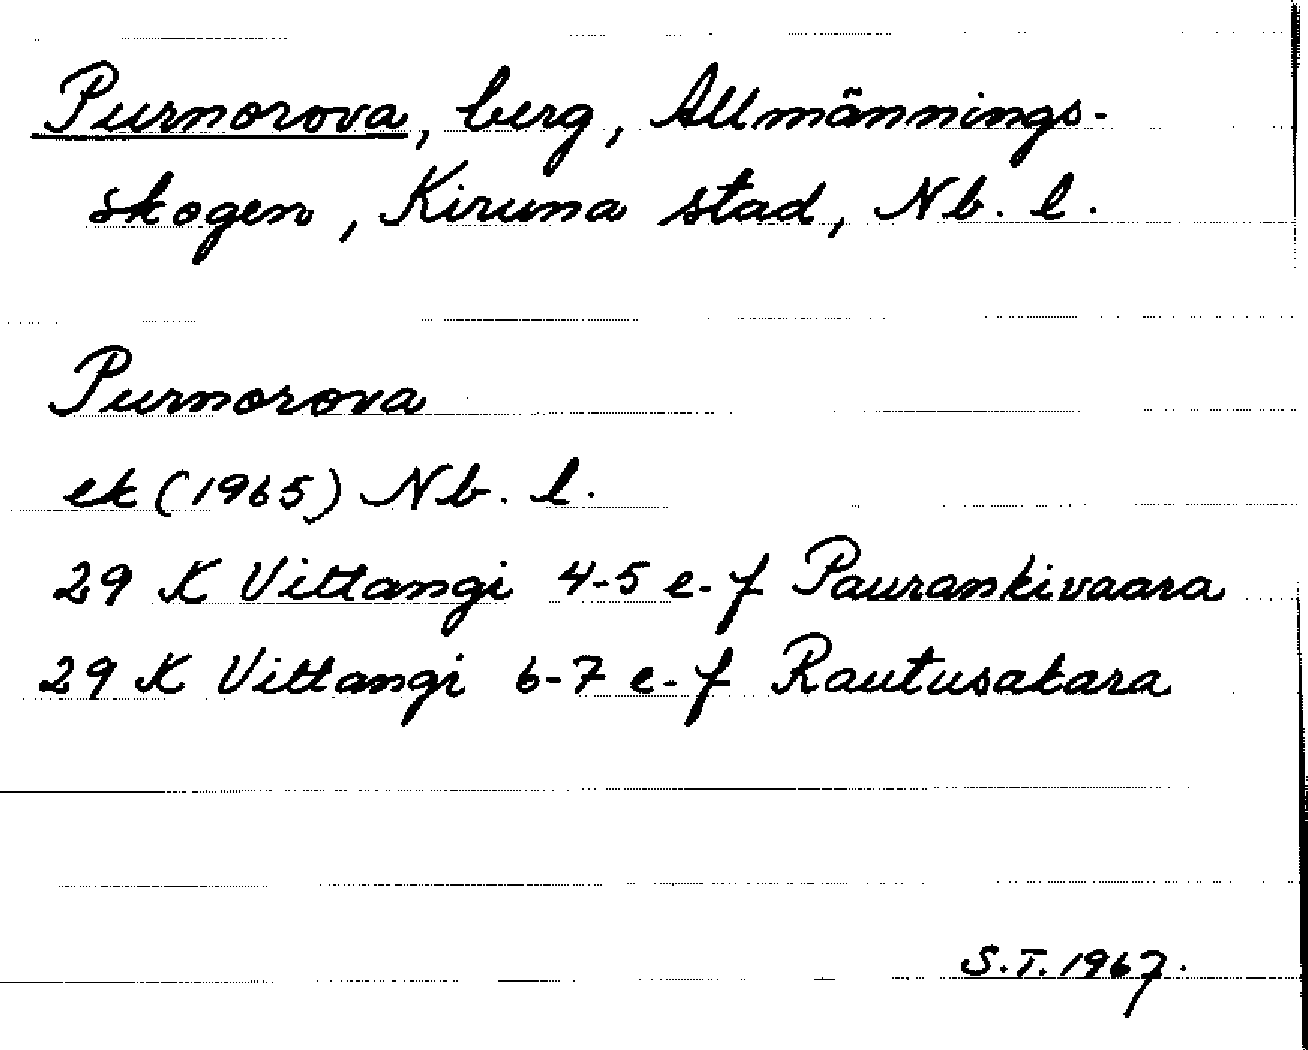 Purnorova, berg, Allmännings-
skogen, Kiruna stad, Nb. l.
Purnorova
ek (1965) Nb. l.
29 K Vittangi 4-5 e-f Paurankivaara
29 K Vittangi 6-7 e-f Rautusakara
S.T. 1967.